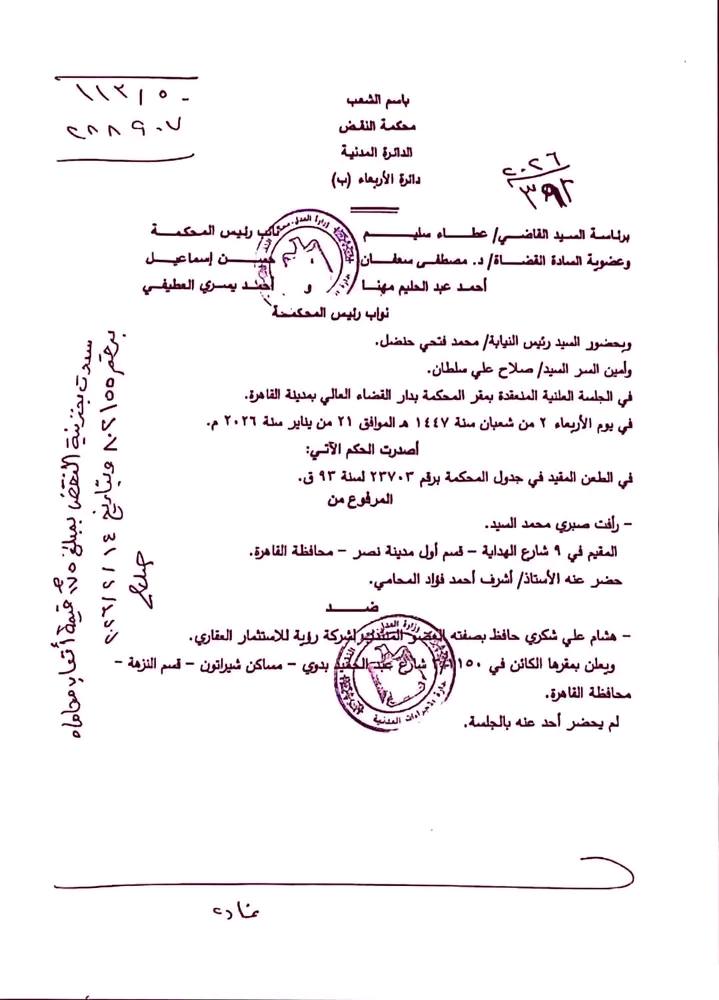 ١١٢١٥٠
٢٨٨٩٠٧
باسم الشعب
محكمة النقض
الدائرة المدنية
دائرة الأربعاء (ب)
٢٠٢٦
برئاسة السيد القاضي/ عطـــاء سليـــم نائب رئيس المحكمة
وعضوية السادة القضاة/ د. مصطفى سعفان حسن إسماعيل
أحمد عبد الحليم مهنا و أحمد يسري العطيفي
نواب رئيس المحكمـحة
وبحضور السيد رئيس النيابة/ محمد فتحي حنضل.
وأمين السر السيد/ صلاح علي سلطان.
في الجلسة العلنية المنعقدة بمقر المحكمة بدار القضاء العالي بمدينة القاهرة.
في يوم الأربعاء ٢ من شعبان سنة ١٤٤٧ هـ الموافق ٢١ من يناير سنة ٢٠٢٦ م.
أصدرت الحكم الآتي:
في الطعن المقيد في جدول المحكمة برقم ٢٣٧٠٣ لسنة ٩٣ ق.
المرفوع من
– رأفت صبري محمد السيد.
المقيم في ٩ شارع الهداية – قسم أول مدينة نصر – محافظة القاهرة.
حضر عنه الأستاذ/ أشرف أحمد فؤاد المحامي.
ضــد
– هشام علي شكري حافظ بصفته العضو المنتدب لشركة رؤية للاستثمار العقاري.
ويعلن بمقرها الكائن في ١١٥٠ شارع عبد الحميد بدوي – مساكن شيراتون – قسم النزهة –
محافظة القاهرة.
لم يحضر أحد عنه بالجلسة.
سددت بخزينة النقض بمبلغ ٧٥ قيمة أتعاب محاماه
برقم ٨٠٢١٥٥ وبتاريخ ٢٠٢٦/٢/١٤